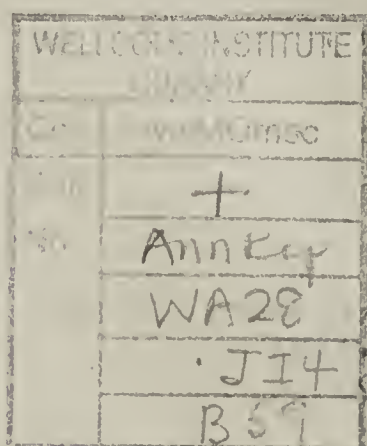 WELLCOME INSTITUTE
LIBRARY
Coll. welMOmec
Call
+
No.
Ann Rep
WA28
.JI4
B59